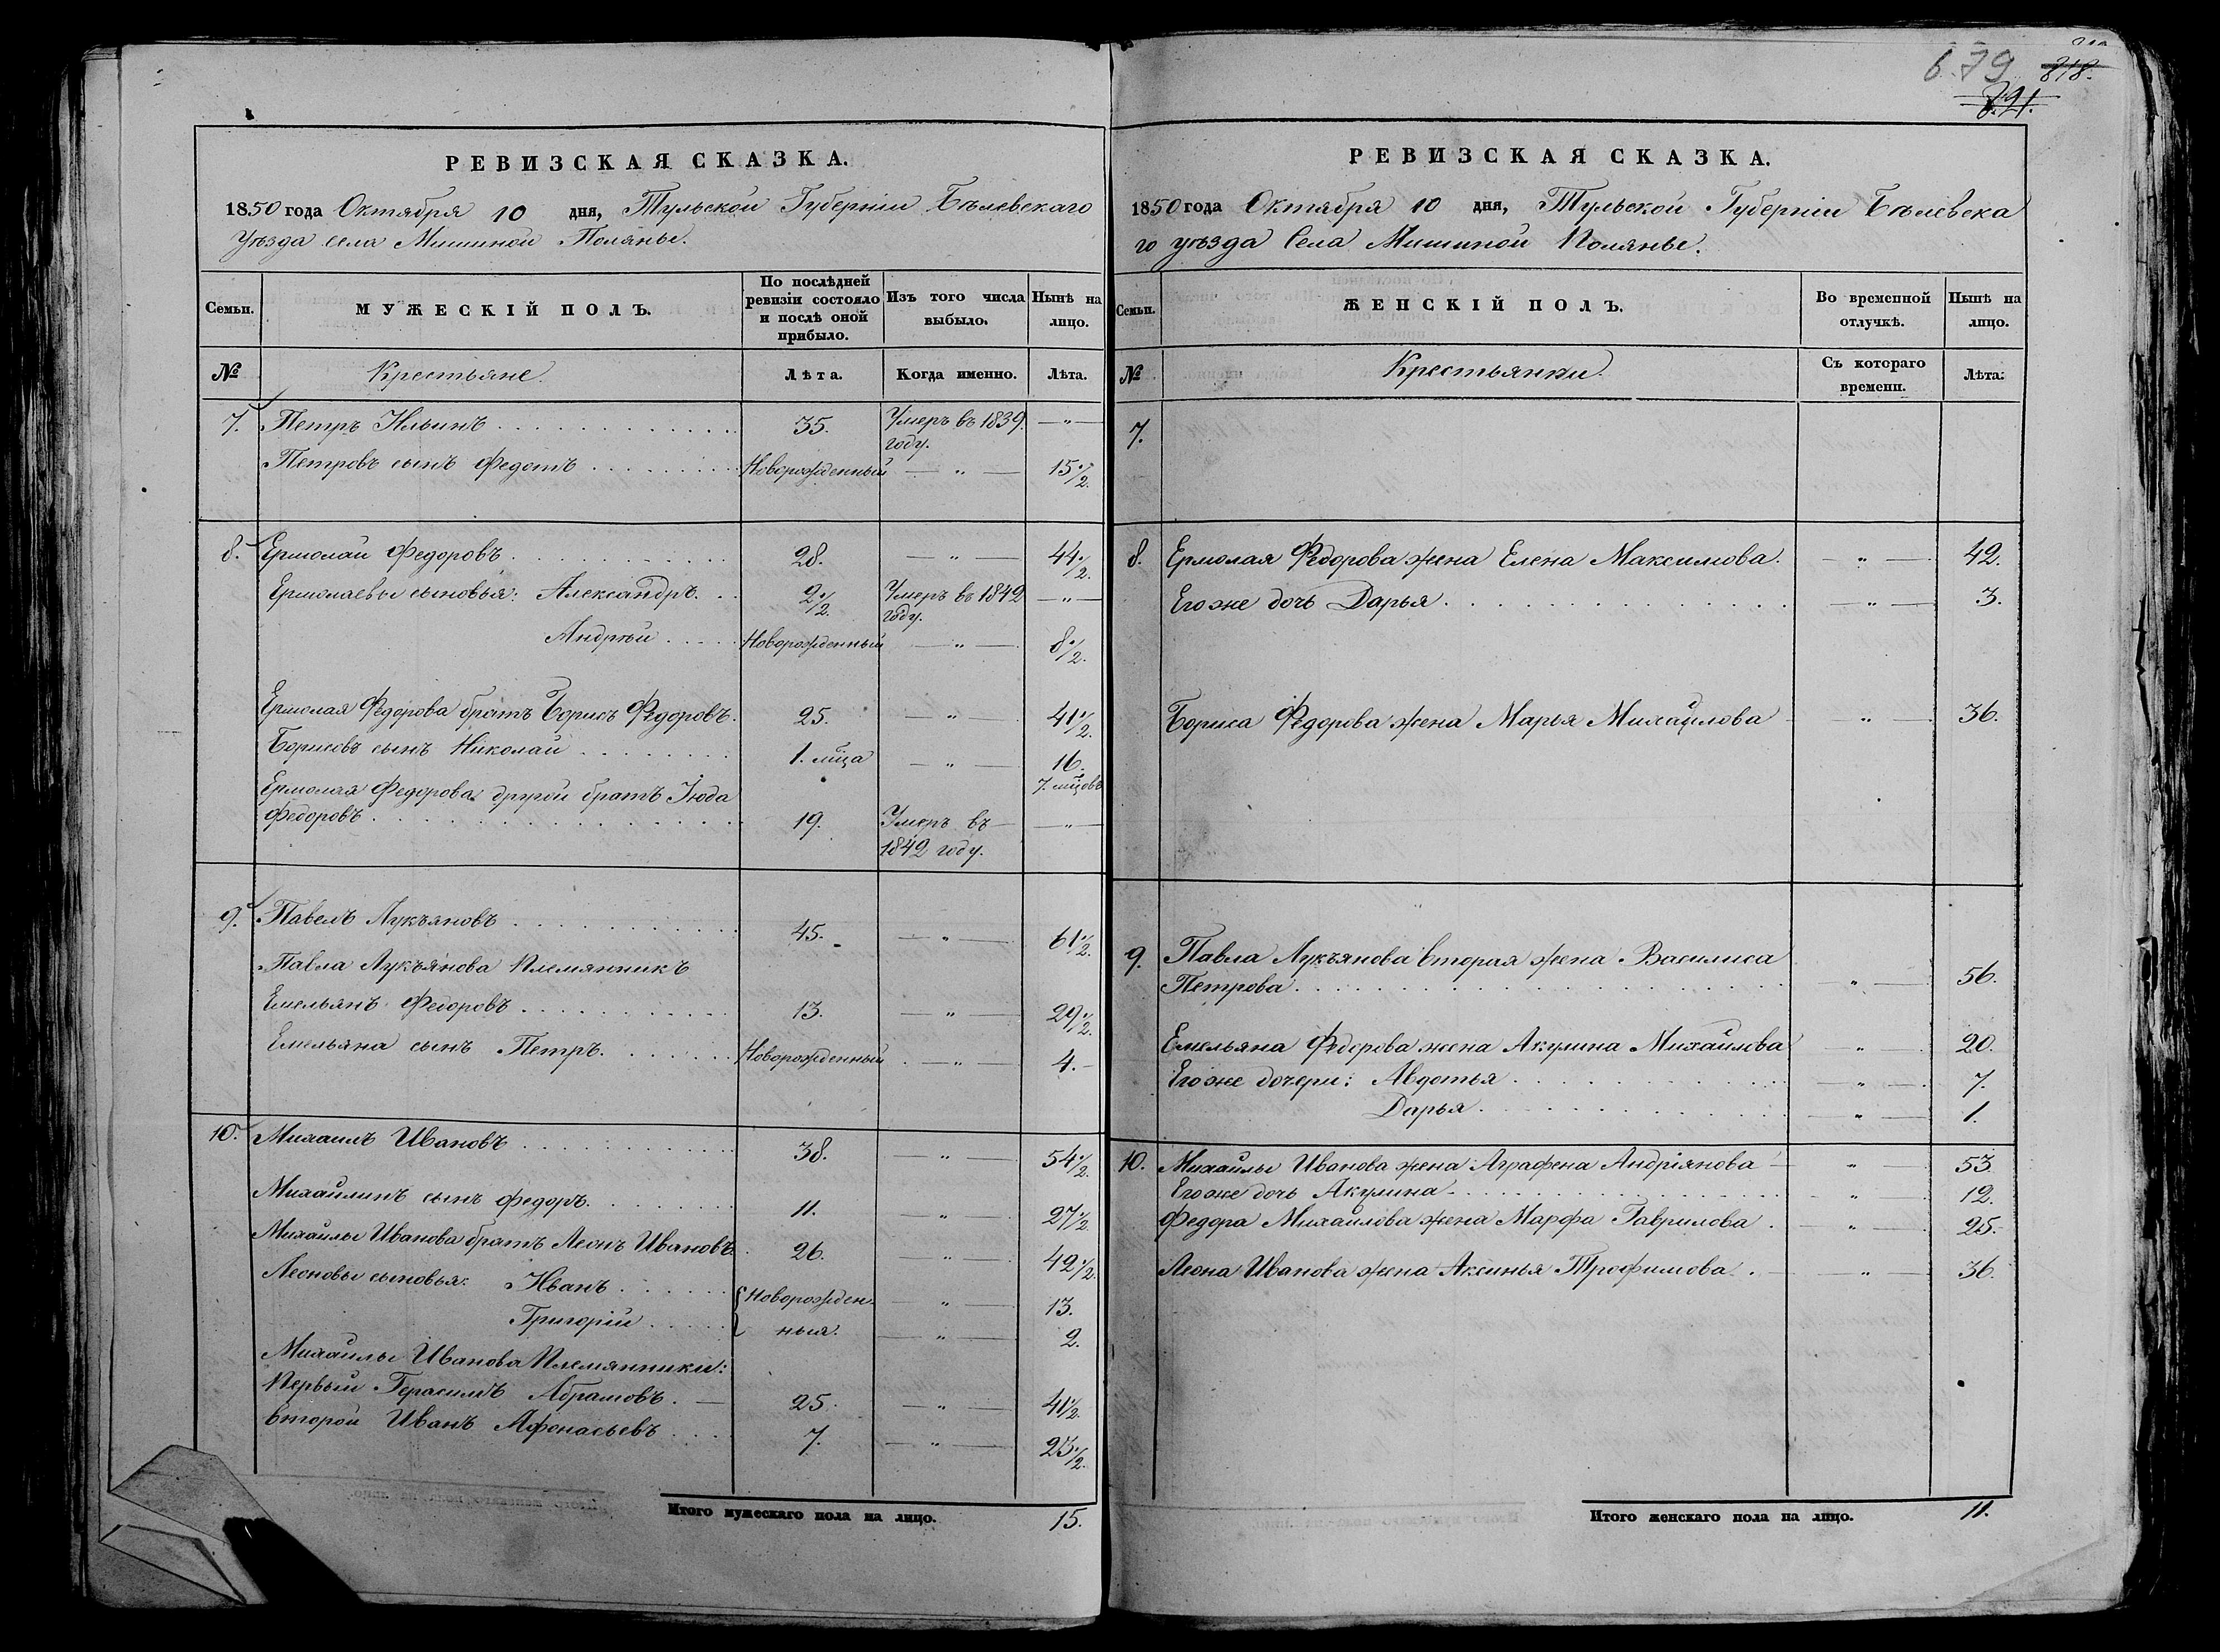 РЕВИЗСКАЯ СКАЗКА.
1850 года Октября 10 дня, Тульской Губерніи Бѣлевскаго
уѣзда села Мишиной Поляны.
Семьи. МУЖЕСКІЙ ПОЛЪ. По послѣдней ревизіи состояло и послѣ оной прибыло. Изъ того числа выбыло. Нынѣ на лицо.
№ Крестьяне. Лѣта. Когда именно. Лѣта.
7. Петръ Ильинъ 35. Умеръ въ 1839 году. — „ —
Петровъ сынъ Федотъ Новорожденный — „ — 15 1/2.
8. Ермолай Федоровъ 28. — „ — 44 1/2.
Ермолаевы сыновья: Александръ 2 1/2. Умеръ въ 1842 году. — „ —
Андрѣй Новорожденный — „ — 8 1/2.
Ермолая Федорова братъ Борисъ Федоровъ. 25. — „ — 41 1/2.
Борисовъ сынъ Николай 1. мца — „ — 16. 7. мцовъ
Ермолая Федорова другой братъ Іюда
Федоровъ 19. Умеръ въ 1842 году. — „ —
9. Павелъ Лукъяновъ 45. — „ — 61 1/2.
Павла Лукъянова племянникъ
Емельянъ Федоровъ 13. — „ — 29 1/2.
Емельяна сынъ Петръ. Новорожденный — „ — 4.
10. Михаилъ Ивановъ 38. — „ — 54 1/2.
Михайлинъ сынъ Федоръ. 11. — „ — 27 1/2.
Михайлы Иванова братъ Леонъ Ивановъ. 26. — „ — 42 1/2.
Леоновы сыновья: Иванъ Новорожден- — „ — 13.
Григорій ныя. — „ — 2.
Михайлы Иванова племянники:
Первый Герасимъ Абрамовъ. 25. — „ — 41 1/2.
второй Иванъ Афонасьевъ 7. — „ — 23 1/2.
Итого мужескаго пола на лицо. 15.
6.79 818.
821.
РЕВИЗСКАЯ СКАЗКА.
1850 года Октября 10 дня, Тульской Губерніи Бѣлевска
го уѣзда Села Мишиной Поляны.
Семьи. ЖЕНСКІЙ ПОЛЪ. Во временной отлучкѣ. Нынѣ на лицо.
№ Крестьянки. Съ котораго времени. Лѣта.
7.
8. Ермолая Федорова жена Елена Максимова. — „ — 42.
Его же дочь Дарья — „ — 3.
Бориса Федорова жена Марья Михайлова — „ — 36.
9. Павла Лукъянова вторая жена Василиса
Петрова — „ — 56.
Емельяна Федорова жена Акулина Михайлова — „ — 20.
Его же дочери: Авдотья — „ — 7.
Дарья — „ — 1.
10. Михайлы Иванова жена Аграфена Андріянова — „ — 53.
Его же дочь Акулина — „ — 12.
Федора Михайлова жена Марфа Гаврилова — „ — 25.
Леона Иванова жена Аксинья Трофимова — „ — 36.
Итого женскаго пола на лицо. 11.